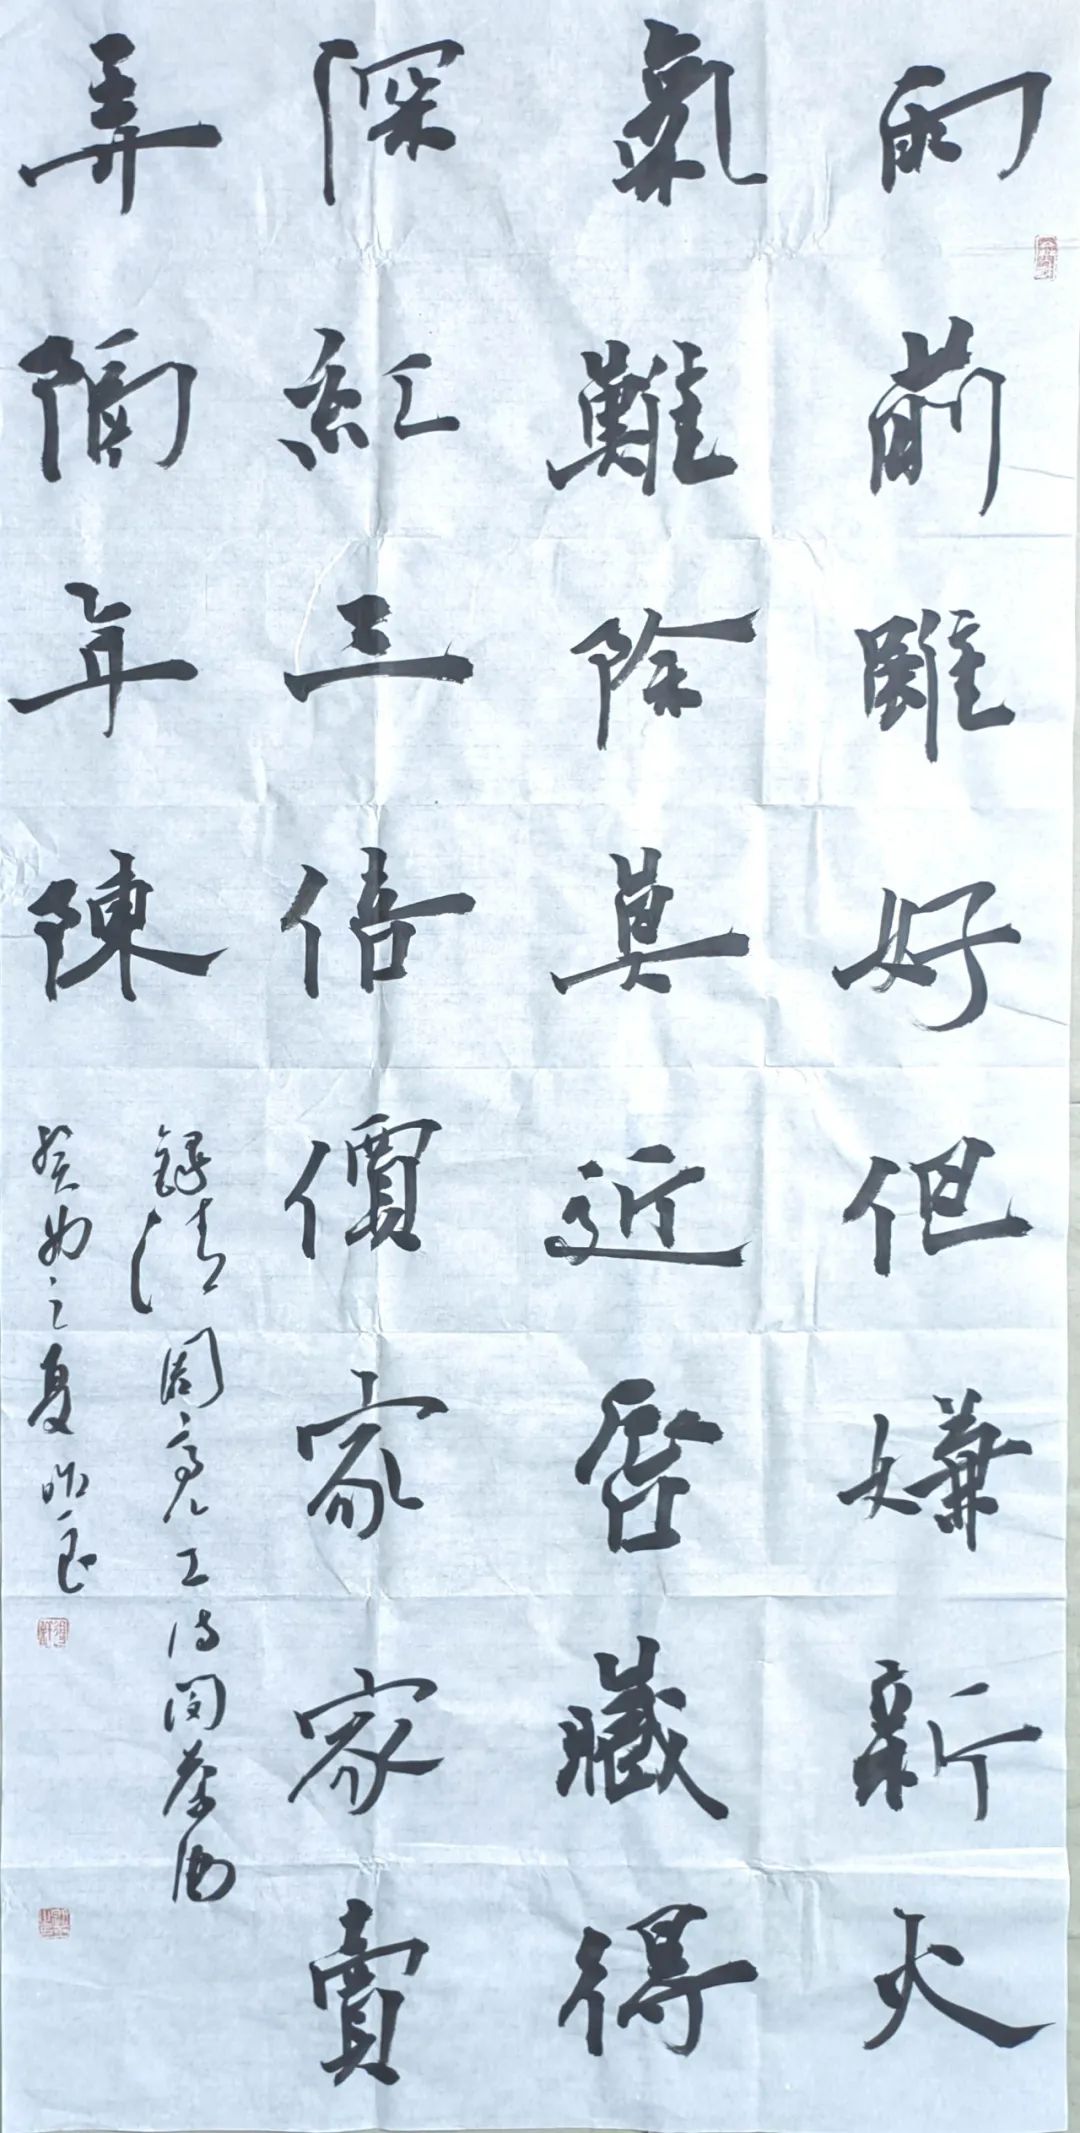 雨前雖好但嫌新火
氣難除莫近唇藏得
深紅三倍價家家賣
弄隔年陳
錄清周亮工詩閩茶
癸卯之夏